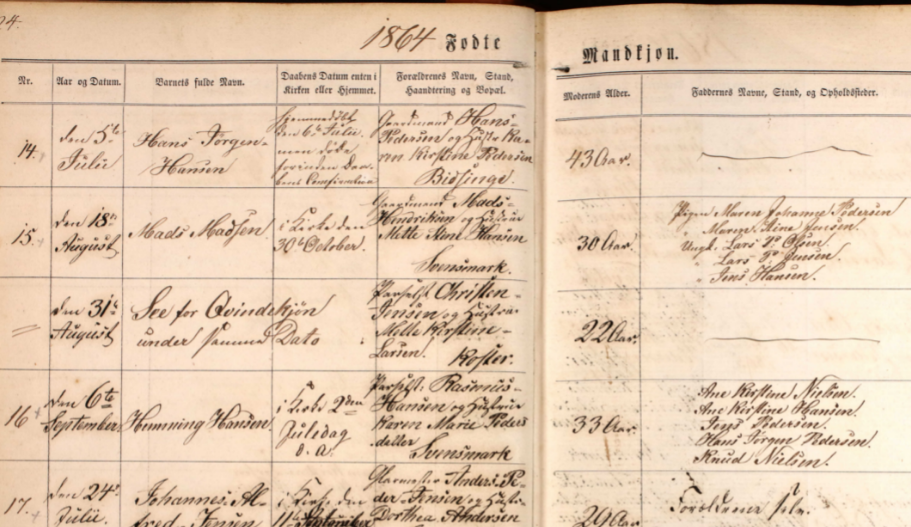 24.
1864 Fødte
Mandkjøn.
Nr.
Aar og Datum.
Barnets fulde Navn.
Daabens Datum enten i
Kirken eller Hjemmet.
Forældrenes Navn, Stand,
Haandtering og Bopæl.
Moderens Alder.
Faddernes Navne, Stand, og Opholdssteder.
14.
den 5te
Julii
Hans Jørgen
Hansen
hjemmedøbt
den 6te Julii
men døde
forinden Daa-
bens Confirmation
Gaardmand Hans
Pedersen og Hustr Ka-
ren Kirstine Pedersen
Bissinge.
43 Aar.
15.
den 18de
August
Mads Madsen
i Kirke den
30te October.
Gaardmand Mads
Hendriksen og Hustrue
Mette Stine Hansen
Svensmark.
30 Aar.
Pigen Maren Johanne Pedersen
" Maren Stine Jensen.
Ungk. Lars Ps Olsen.
" Lars Ps Jensen.
" Jens Hansen.
=
den 31te
August
See for Qvindekjøn
under samme Dato
Parselst Christen
Jensen og Hustrue
Mette Kirstine
Larsen. Koster.
22 Aar.
16
den 6te
September
Hemming Hansen
i Kirke 2den
Juledag
d. a.
Parselst. Rasmus
Hansen og Hustrue
Karen Marie Peders
datter
Svensmark
33 Aar.
Ane Kirstine Nielsen.
Ane Kirstine Hansen.
Jens Pedersen.
Hans Jørgen Pedersen.
Knud Nielsen.
17.
den 24de
Julii.
Johannes Al
fred Jensen
i Kirke den
11te September
Glarmester Anders Pe-
der Jensen og Hustr
Dorthea Andersen
29 Aar
Forældrene selv.